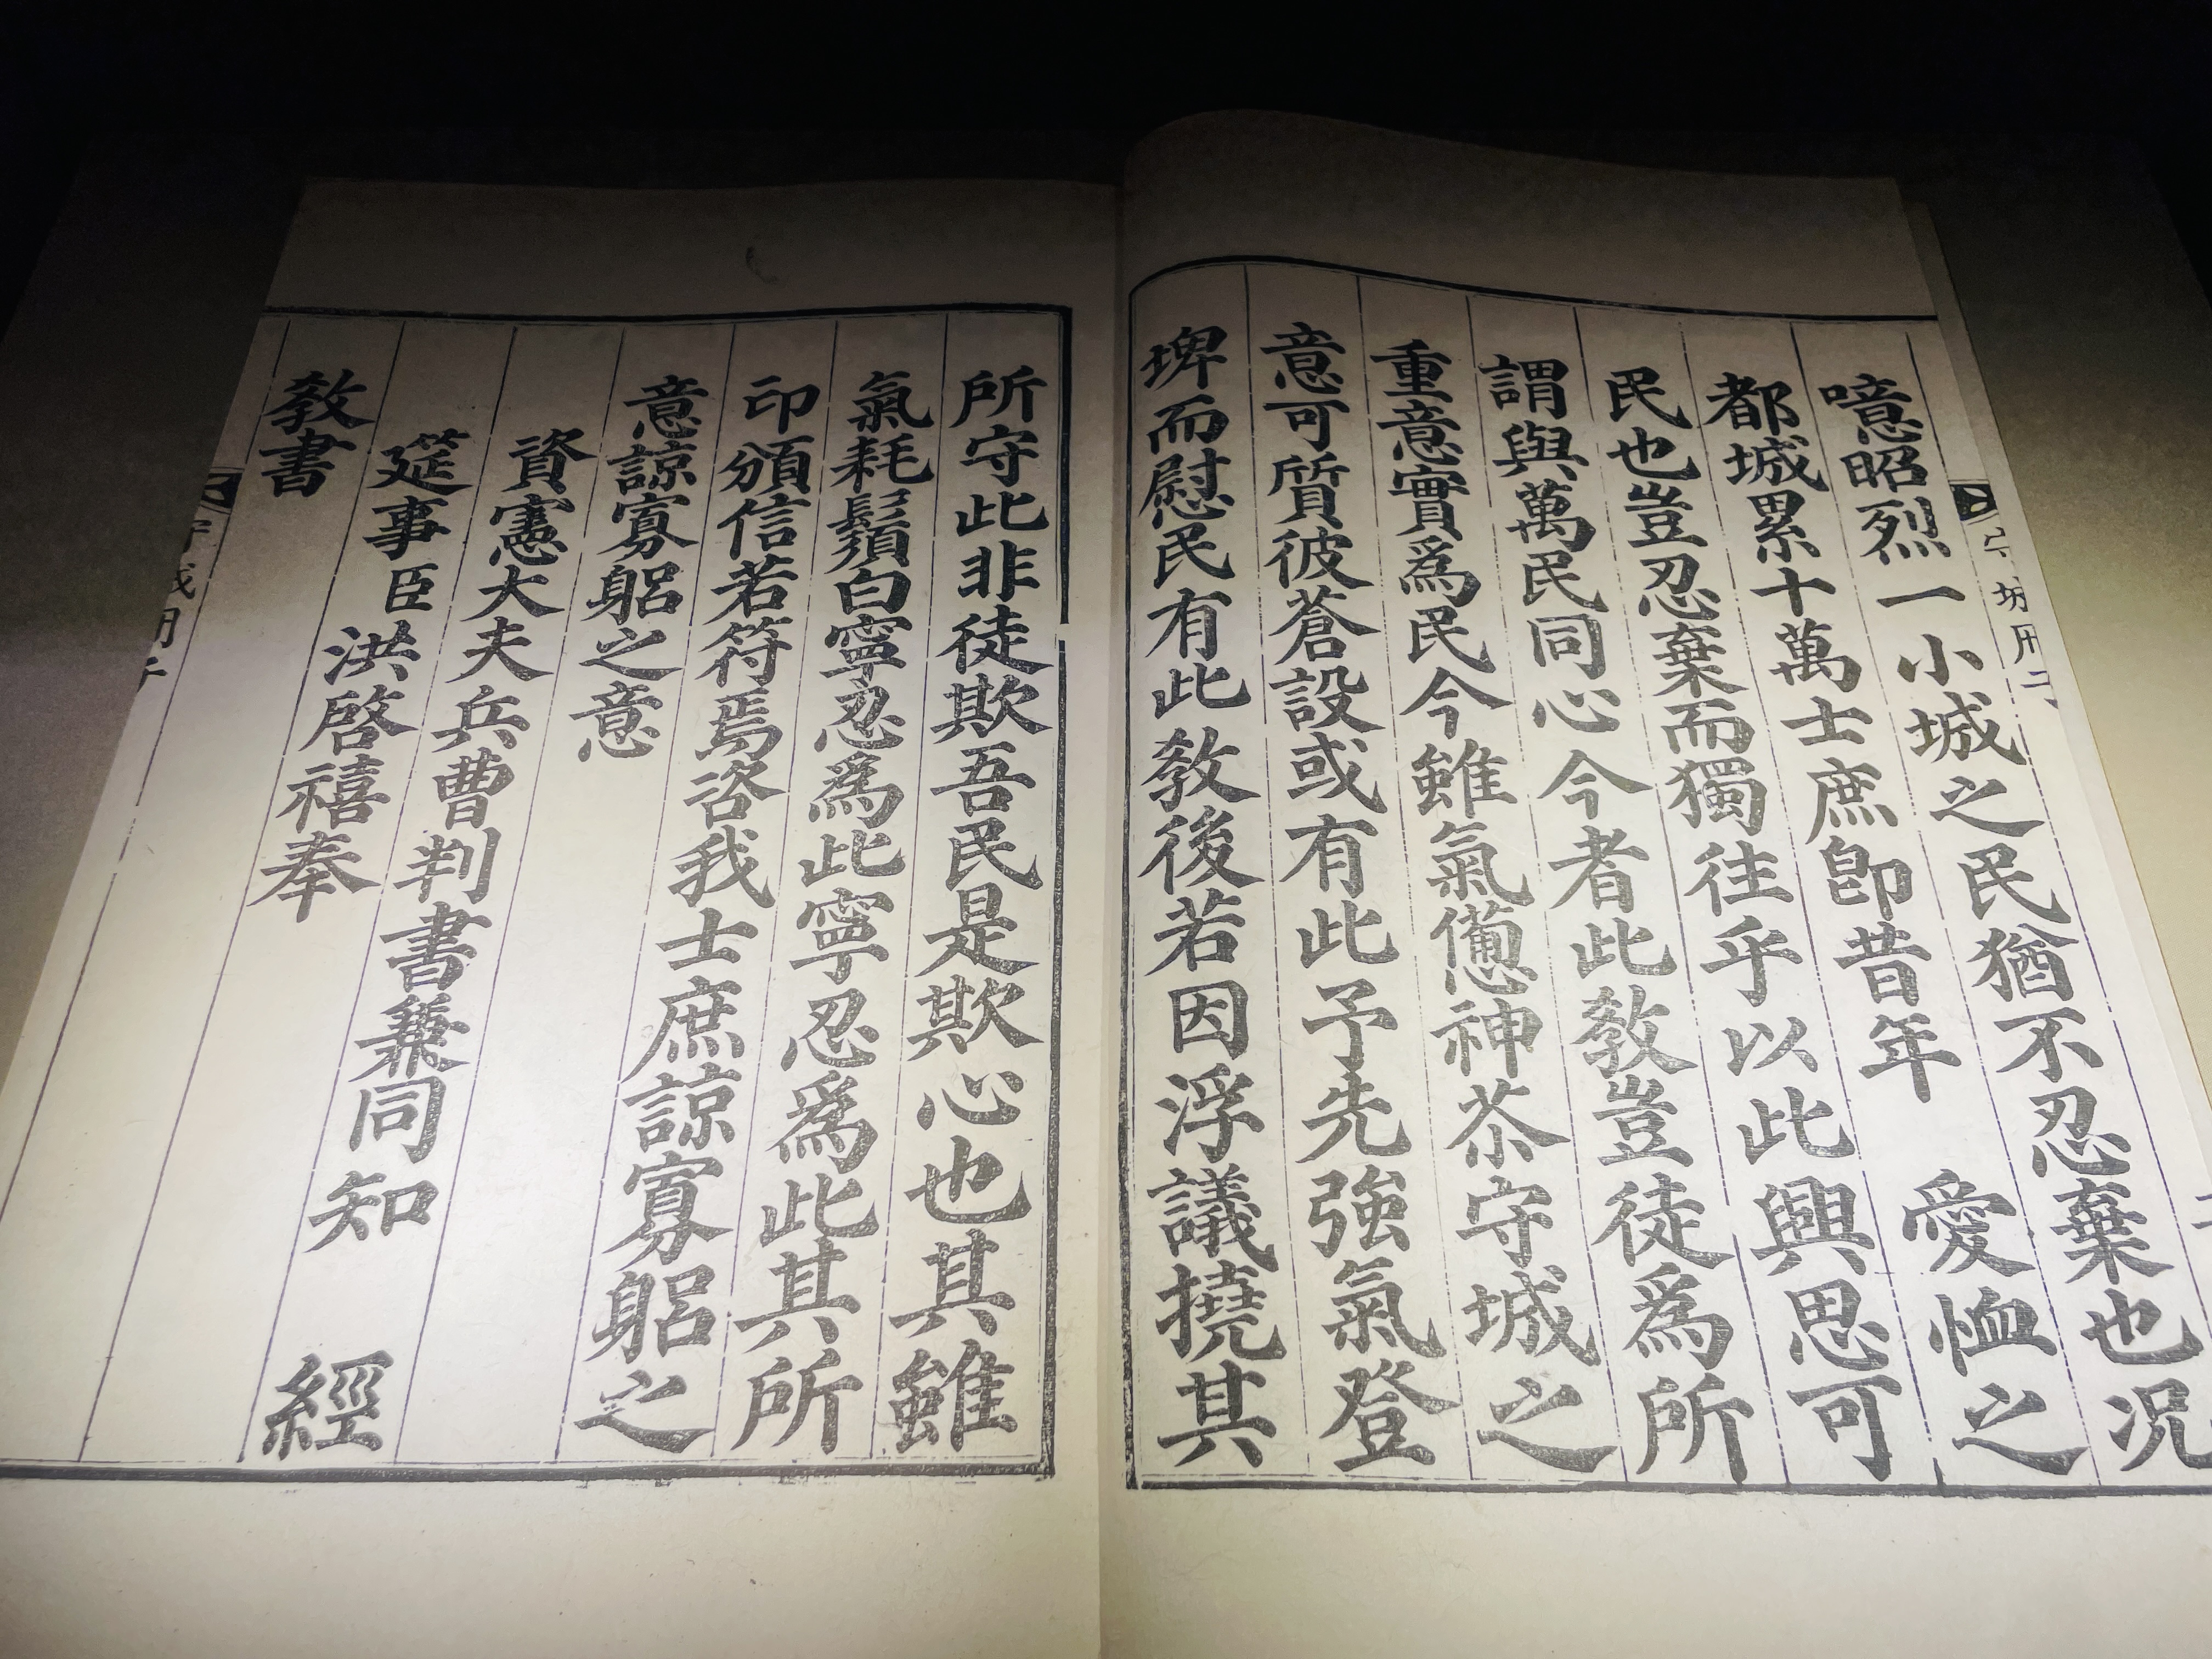 噫昭烈一小城之民猶不忍棄也况
都城累十萬士庶卽昔年 愛恤之
民也豈忍棄而獨往乎以此興思可
謂與萬民同心今者此敎豈徒爲所
重意實爲民今雖氣憊神苶守城之
意可質彼蒼設或有此予先強氣登
埤而慰民有此敎後若因浮議撓其
所守此非徒欺吾民是欺心也其雖
氣耗鬚白寧忍爲此寧忍爲此其所
印頒信若符焉咨我士庶諒寡躬之
意諒寡躬之意
資憲大夫兵曹判書兼同知 經
筵事臣洪啓禧奉
敎書